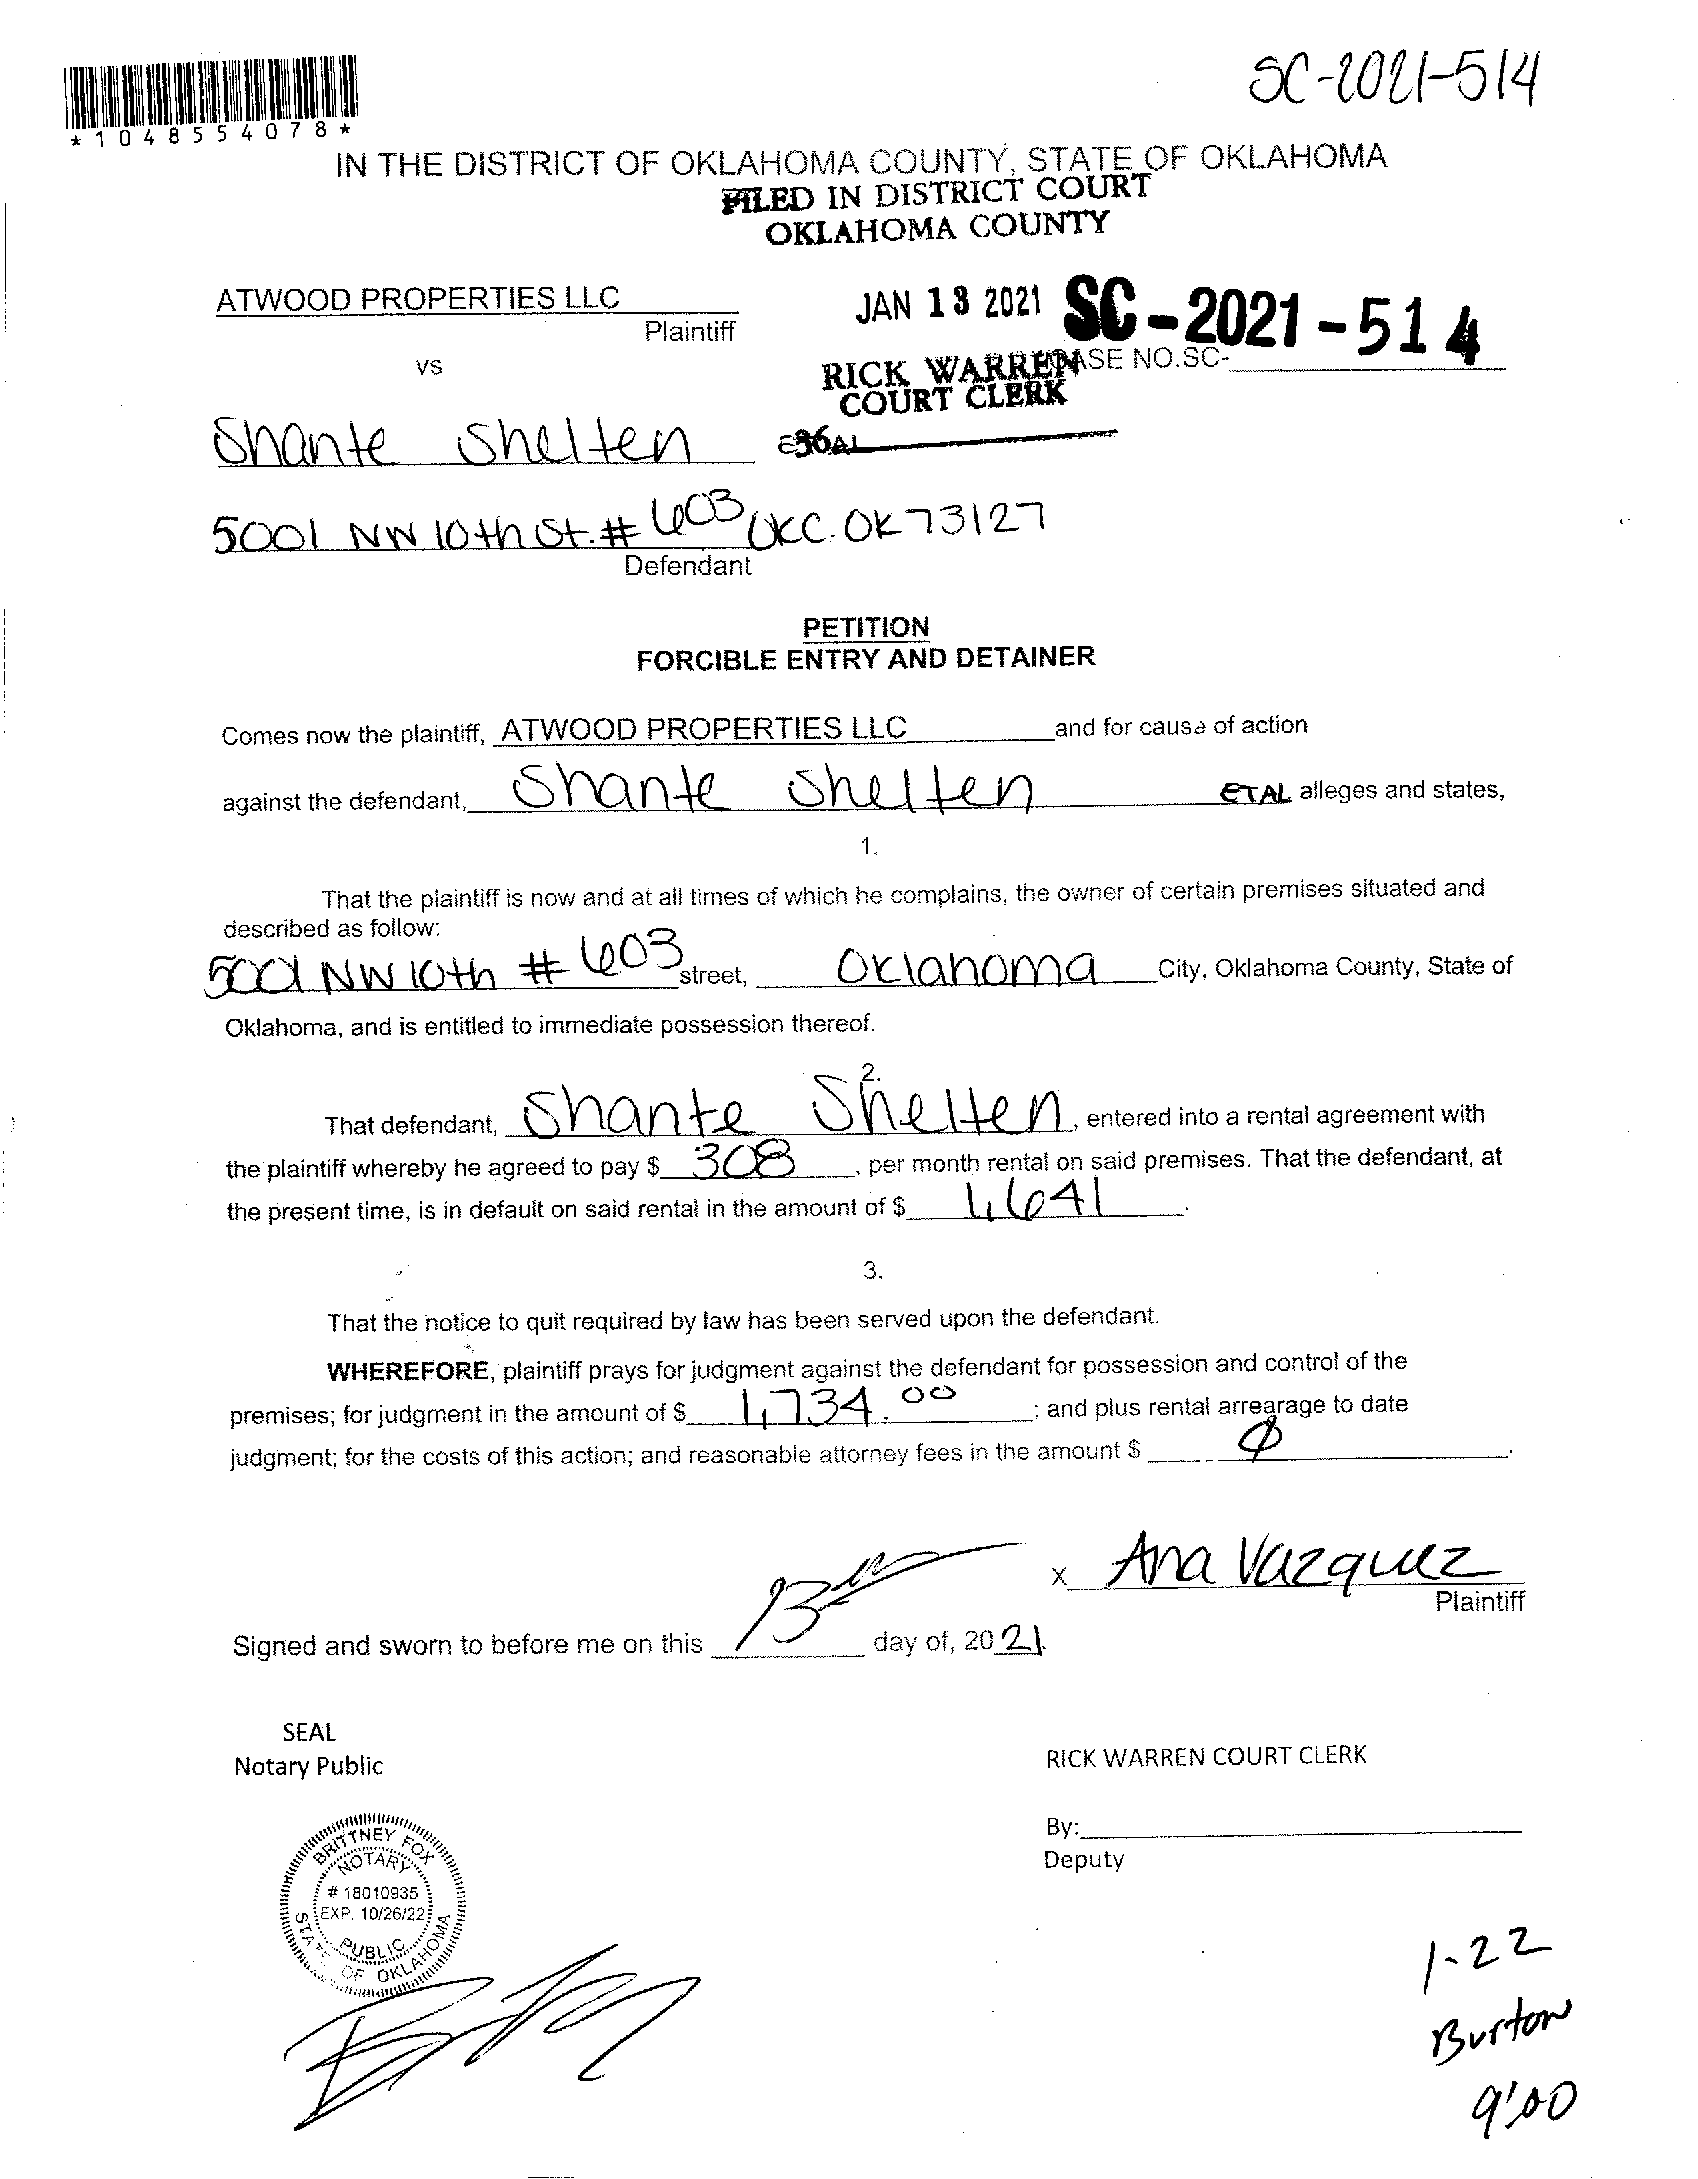 SC-2021-514
*1048554078*
IN THE DISTRICT OF OKLAHOMA COUNTY, STATE OF OKLAHOMA
FILED IN DISTRICT COURT
OKLAHOMA COUNTY
ATWOOD PROPERTIES LLC
Plaintiff
JAN 13 2021 SC-2021-514
vs
RICK WARREN CASE NO.SC-
COURT CLERK
Shante Shelten
5001 NW 10th St. # 603 OKC. OK 73127
Defendant
PETITION
FORCIBLE ENTRY AND DETAINER
Comes now the plaintiff, ATWOOD PROPERTIES LLC and for cause of action
against the defendant, Shante Shelten ETAL alleges and states,
1.
That the plaintiff is now and at all times of which he complains, the owner of certain premises situated and
described as follow:
5001 NW 10th # 603 street, Oklahoma City, Oklahoma County, State of
Oklahoma, and is entitled to immediate possession thereof.
2.
That defendant, Shante Shelten, entered into a rental agreement with
the plaintiff whereby he agreed to pay $ 308, per month rental on said premises. That the defendant, at
the present time, is in default on said rental in the amount of $ 1,641.
3.
That the notice to quit required by law has been served upon the defendant.
WHEREFORE, plaintiff prays for judgment against the defendant for possession and control of the
premises; for judgment in the amount of $ 1,734.00; and plus rental arrearage to date
judgment; for the costs of this action; and reasonable attorney fees in the amount $ Ø.
x Ana Vazquez
Plaintiff
Signed and sworn to before me on this day of, 2021.
SEAL
Notary Public
RICK WARREN COURT CLERK
By:
Deputy
BRITTNEY FOX
NOTARY
# 18010935
EXP. 10/26/22
PUBLIC
STATE OF OKLAHOMA
1-22
Burton
9:00